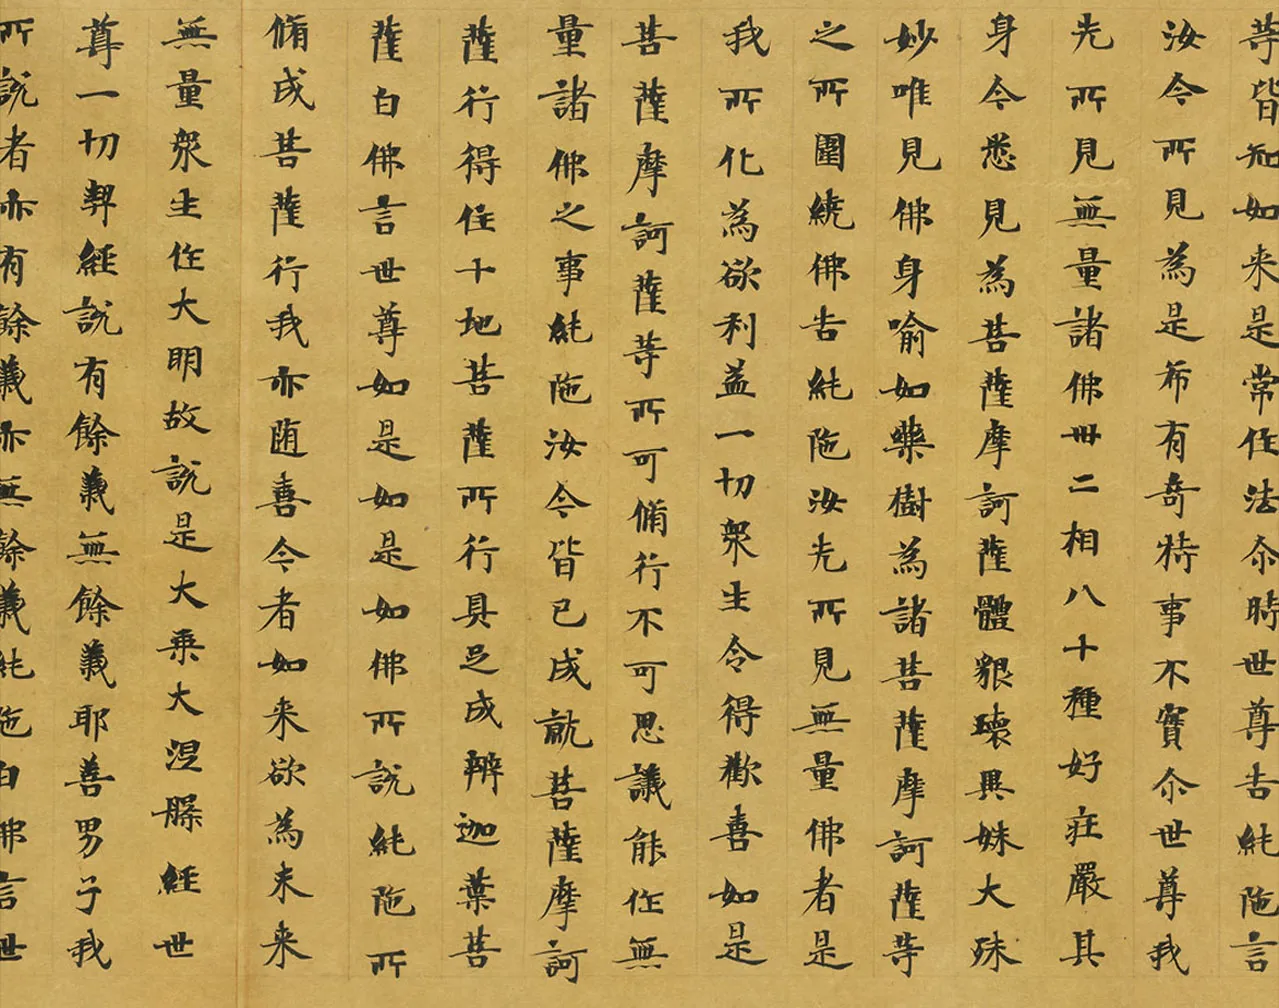 等皆知如来是常住法尒時世尊告純陁言
汝今所見為是希有奇特事不實尒世尊我
先所見無量諸佛卅二相八十種好莊嚴其
身今悉見為菩薩摩訶薩體皃瓌異姝大殊
妙唯見佛身喻如藥樹為諸菩薩摩訶薩等
之所圍繞佛告純陁汝先所見無量佛者是
我所化為欲利益一切衆生令得歡喜如是
菩薩摩訶薩等所可脩行不可思議能作無
量諸佛之事純陁汝今皆已成就菩薩摩訶
薩行得住十地菩薩所行具足成辦迦葉菩
薩白佛言世尊如是如是如佛所說純陁所
脩成菩薩行我亦随喜今者如来欲為未来
無量衆生作大明故說是大乗大涅槃經世
尊一切契經說有餘義無餘義耶善男子我
所說者亦有餘義亦無餘義純陁白佛言世